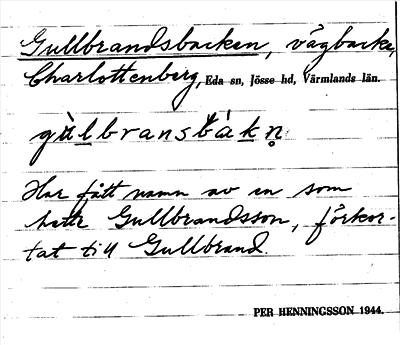 Gullbrandsbacken, vägbacke,
Charlottenberg, Eda sn, Jösse hd, Värmlands län.
gu̇lbransbákn̥
Har fått namn av en som
hette Gullbrandsson, förkor-
tat till Gullbrand.
PER HENNINGSSON 1944.